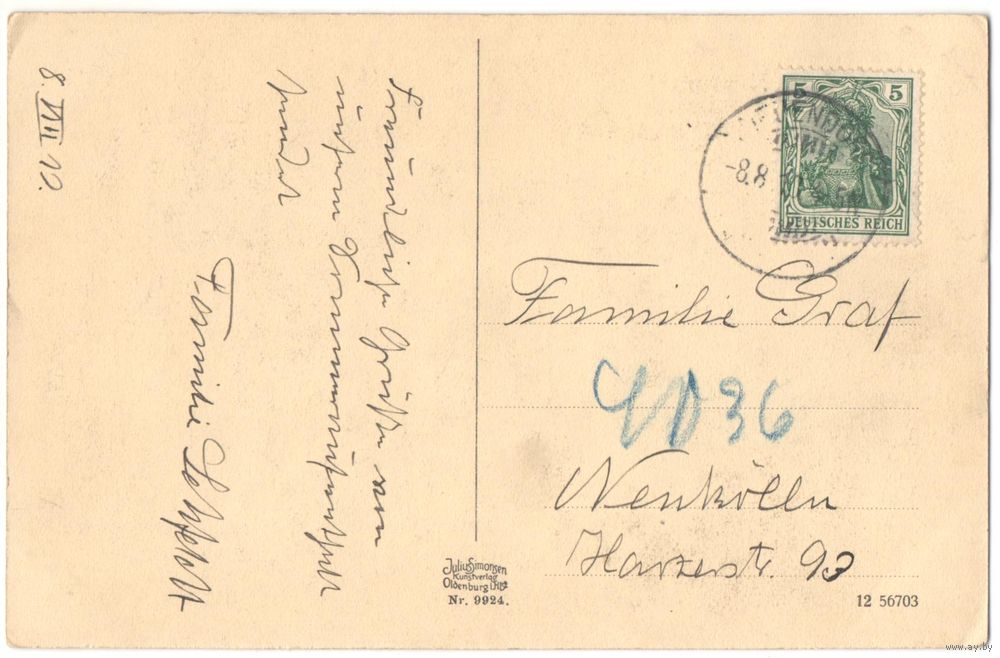 8. VIII 12.
Freundliche Grüße von
unserem Sommeraufenthalt
sendet
Familie
5 5
DEUTSCHES REICH
-8.8
Familie Graf
Neukölln
Harzerstr. 93
Julius Simonsen
Kunstverlag
Oldenburg i. Holst
Nr. 9924.
12 56703
www.ay.by